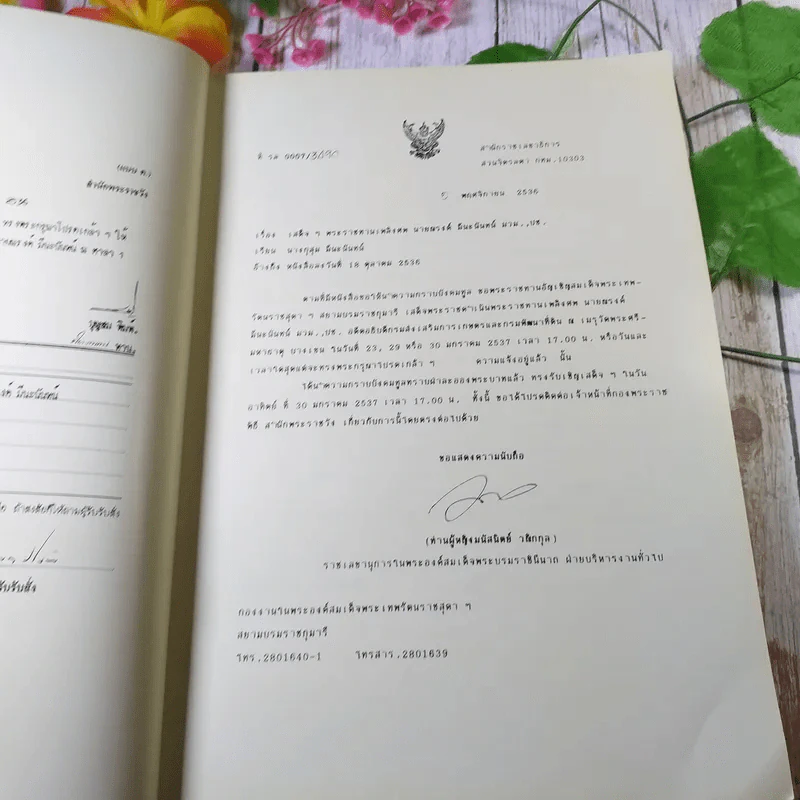 (แบบ ต.)
สำนักพระราชวัง
ทรงพระกรุณาโปรดเกล้า ฯ ให้
มีนะนันทน์ ณ ศาลา 1
บุญชม
มีนะนันทน์
ที่ รล 0007/3690
สำนักราชเลขาธิการ
สวนจิตรลดา กทม.10303
พฤศจิกายน 2536
เรื่อง เสด็จ ฯ พระราชทานเพลิงศพ นายณรงค์ มีนะนันทน์ มวม.,ปช.
เรียน นางกุสุม มีนะนันทน์
อ้างถึง หนังสือลงวันที่ 18 ตุลาคม 2536
ตามที่มีหนังสือขอให้นำความกราบบังคมทูล ขอพระราชทานอัญเชิญสมเด็จพระเทพ-
รัตนราชสุดา ฯ สยามบรมราชกุมารี เสด็จพระราชดำเนินพระราชทานเพลิงศพ นายณรงค์
มีนะนันทน์ มวม.,ปช. อดีตอธิบดีกรมส่งเสริมการเกษตรและกรมพัฒนาที่ดิน ณ เมรุวัดพระศรี-
มหาธาตุ บางเขน ในวันที่ 23, 29 หรือ 30 มกราคม 2537 เวลา 17.00 น. หรือวันและ
เวลาใดสุดแต่จะทรงพระกรุณาโปรดเกล้า ฯ ความแจ้งอยู่แล้ว นั้น
ได้นำความกราบบังคมทูลทราบฝ่าละอองพระบาทแล้ว ทรงรับเชิญเสด็จ ฯ ในวัน
อาทิตย์ ที่ 30 มกราคม 2537 เวลา 17.00 น. ทั้งนี้ ขอได้โปรดติดต่อเจ้าหน้าที่กองพระราช
พิธี สำนักพระราชวัง เกี่ยวกับการนี้โดยตรงต่อไปด้วย
ขอแสดงความนับถือ
(ท่านผู้หญิงมนัสนิตย์ วณิกกุล)
ราชเลขานุการในพระองค์สมเด็จพระบรมราชินีนาถ ฝ่ายบริหารงานทั่วไป
กองงานในพระองค์สมเด็จพระเทพรัตนราชสุดา ฯ
สยามบรมราชกุมารี
โทร.2801640-1 โทรสาร.2801639